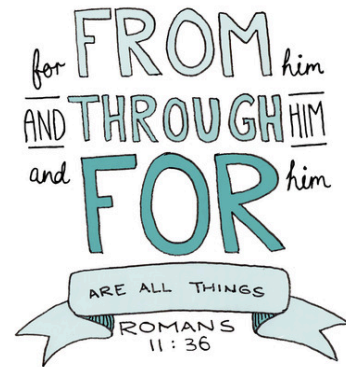 for FROM him
AND THROUGH HIM
and FOR him
ARE ALL THINGS
ROMANS
11:36